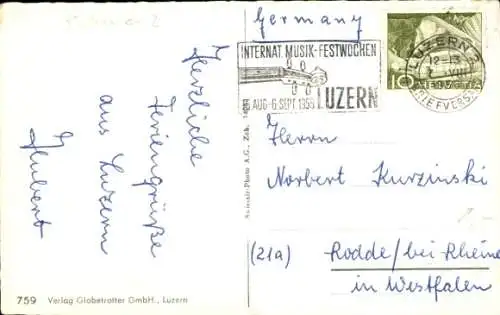 Germany
INTERNAT. MUSIK-FESTWOCHEN
AUG-6 SEPT. 1958 LUZERN
LUZERN
12-13
VIII
BRIEFVERS
10
HELVETIA
Herzliche
Feriengrüße
aus Luzern
Hubert
Herrn
Norbert Kurzinski
(21a)
Rodde/bei Rheine
in Westfalen
759 Verlag Globetrotter GmbH., Luzern